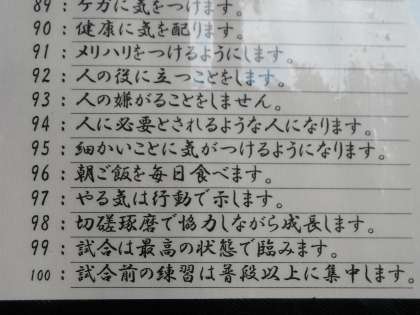 89 : ケガに気をつけます。
90 : 健康に気を配ります。
91 : メリハリをつけるようにします。
92 : 人の役に立つことをします。
93 : 人の嫌がることをしません。
94 : 人に必要とされるような人になります。
95 : 細かいことに気がつけるようになります。
96 : 朝ご飯を毎日食べます。
97 : やる気は行動で示します。
98 : 切磋琢磨で協力しながら成長します。
99 : 試合は最高の状態で臨みます。
100 : 試合前の練習は普段以上に集中します。